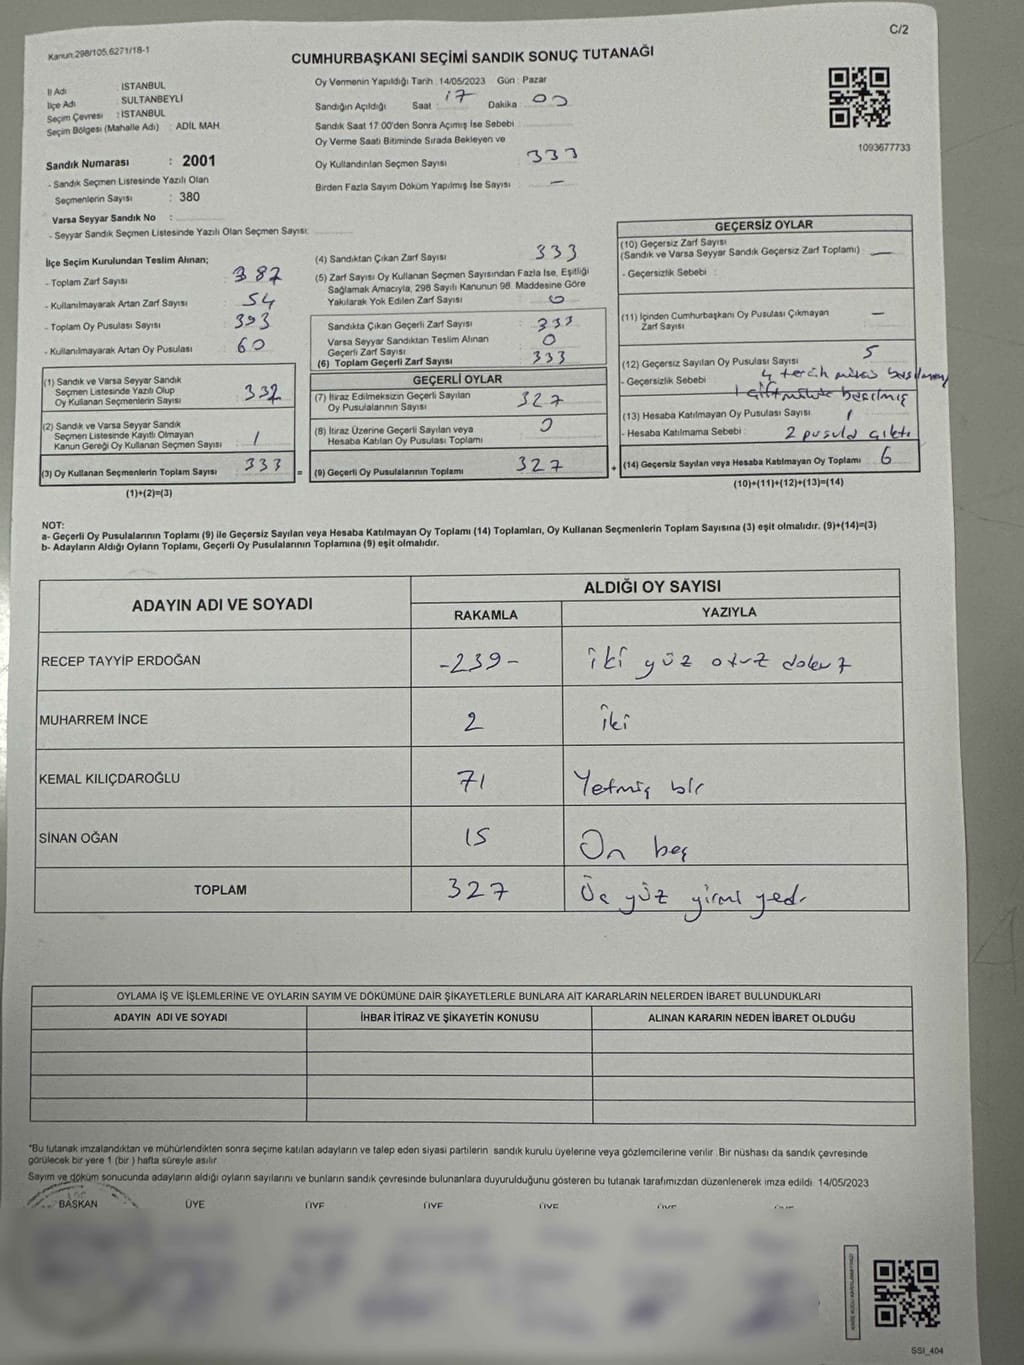 C/2
Kanun:298/105,6271/18-1
CUMHURBAŞKANI SEÇİMİ SANDIK SONUÇ TUTANAĞI
İl Adı : İSTANBUL
İlçe Adı : SULTANBEYLİ
Seçim Çevresi : İSTANBUL
Seçim Bölgesi (Mahalle Adı) : ADİL MAH
Sandık Numarası : 2001
- Sandık Seçmen Listesinde Yazılı Olan
Seçmenlerin Sayısı : 380
Varsa Seyyar Sandık No :
- Seyyar Sandık Seçmen Listesinde Yazılı Olan Seçmen Sayısı:
Oy Vermenin Yapıldığı Tarih : 14/05/2023 Gün : Pazar
Sandığın Açıldığı Saat 17 Dakika 00
Sandık Saat 17 00'den Sonra Açımış İse Sebebi
Oy Verme Saati Bitiminde Sırada Bekleyen ve
Oy Kullandırılan Seçmen Sayısı 333
Birden Fazla Sayım Döküm Yapılmış İse Sayısı —
1093677733
İlçe Seçim Kurulundan Teslim Alınan;
- Toplam Zarf Sayısı 387
- Kullanılmayarak Artan Zarf Sayısı : 54
- Toplam Oy Pusulası Sayısı : 393
- Kullanılmayarak Artan Oy Pusulası : 60
(1) Sandık ve Varsa Seyyar Sandık
Seçmen Listesinde Yazılı Olup
Oy Kullanan Seçmenlerin Sayısı 332
(2) Sandık ve Varsa Seyyar Sandık
Seçmen Listesinde Kayıtlı Olmayan
Kanun Gereği Oy Kullanan Seçmen Sayısı 1
(3) Oy Kullanan Seçmenlerin Toplam Sayısı 333 =
(1)+(2)=(3)
(4) Sandıktan Çıkan Zarf Sayısı 333
(5) Zarf Sayısı Oy Kullanan Seçmen Sayısından Fazla İse, Eşitliği
Sağlamak Amacıyla, 298 Sayılı Kanunun 98. Maddesine Göre
Yakılarak Yok Edilen Zarf Sayısı 0
Sandıkta Çıkan Geçerli Zarf Sayısı : 333
Varsa Seyyar Sandıktan Teslim Alınan
Geçerli Zarf Sayısı 0
(6) Toplam Geçerli Zarf Sayısı : 333
GEÇERLİ OYLAR
(7) İtiraz Edilmeksizin Geçerli Sayılan
Oy Pusulalarının Sayısı 327
(8) İtiraz Üzerine Geçerli Sayılan veya
Hesaba Katılan Oy Pusulası Toplamı 0
(9) Geçerli Oy Pusulalarının Toplamı 327 +
GEÇERSİZ OYLAR
(10) Geçersiz Zarf Sayısı
(Sandık ve Varsa Seyyar Sandık Geçersiz Zarf Toplamı) : —
- Geçersizlik Sebebi :
(11) İçinden Cumhurbaşkanı Oy Pusulası Çıkmayan
Zarf Sayısı —
(12) Geçersiz Sayılan Oy Pusulası Sayısı 5
- Geçersizlik Sebebi 4 tercih mührü basılmamış
1 çift mühür basılmış
(13) Hesaba Katılmayan Oy Pusulası Sayısı 1
- Hesaba Katılmama Sebebi : 2 pusula çıktı
(14) Geçersiz Sayılan veya Hesaba Katılmayan Oy Toplamı 6
(10)+(11)+(12)+(13)=(14)
NOT:
a- Geçerli Oy Pusulalarının Toplamı (9) ile Geçersiz Sayılan veya Hesaba Katılmayan Oy Toplamı (14) Toplamları, Oy Kullanan Seçmenlerin Toplam Sayısına (3) eşit olmalıdır. (9)+(14)=(3)
b- Adayların Aldığı Oyların Toplamı, Geçerli Oy Pusulalarının Toplamına (9) eşit olmalıdır.
ADAYIN ADI VE SOYADI
ALDIĞI OY SAYISI
RAKAMLA YAZIYLA
RECEP TAYYİP ERDOĞAN -239- iki yüz otuz dokuz
MUHARREM İNCE 2 iki
KEMAL KILIÇDAROĞLU 71 Yetmiş bir
SİNAN OĞAN 15 On beş
TOPLAM 327 Üç yüz yirmi yedi
OYLAMA İŞ VE İŞLEMLERİNE VE OYLARIN SAYIM VE DÖKÜMÜNE DAİR ŞİKAYETLERLE BUNLARA AİT KARARLARIN NELERDEN İBARET BULUNDUKLARI
ADAYIN ADI VE SOYADI İHBAR İTİRAZ VE ŞİKAYETİN KONUSU ALINAN KARARIN NEDEN İBARET OLDUĞU
*Bu tutanak imzalandıktan ve mühürlendikten sonra seçime katılan adayların ve talep eden siyasi partilerin sandık kurulu üyelerine veya gözlemcilerine verilir .Bir nüshası da sandık çevresinde
görülecek bir yere 1 (bir ) hafta süreyle asılır.
Sayım ve döküm sonucunda adayların aldığı oyların sayılarını ve bunların sandık çevresinde bulunanlara duyurulduğunu gösteren bu tutanak tarafımızdan düzenlenerek imza edildi 14/05/2023
BAŞKAN ÜYE ÜYE ÜYE ÜYE ÜYE
SSI_404